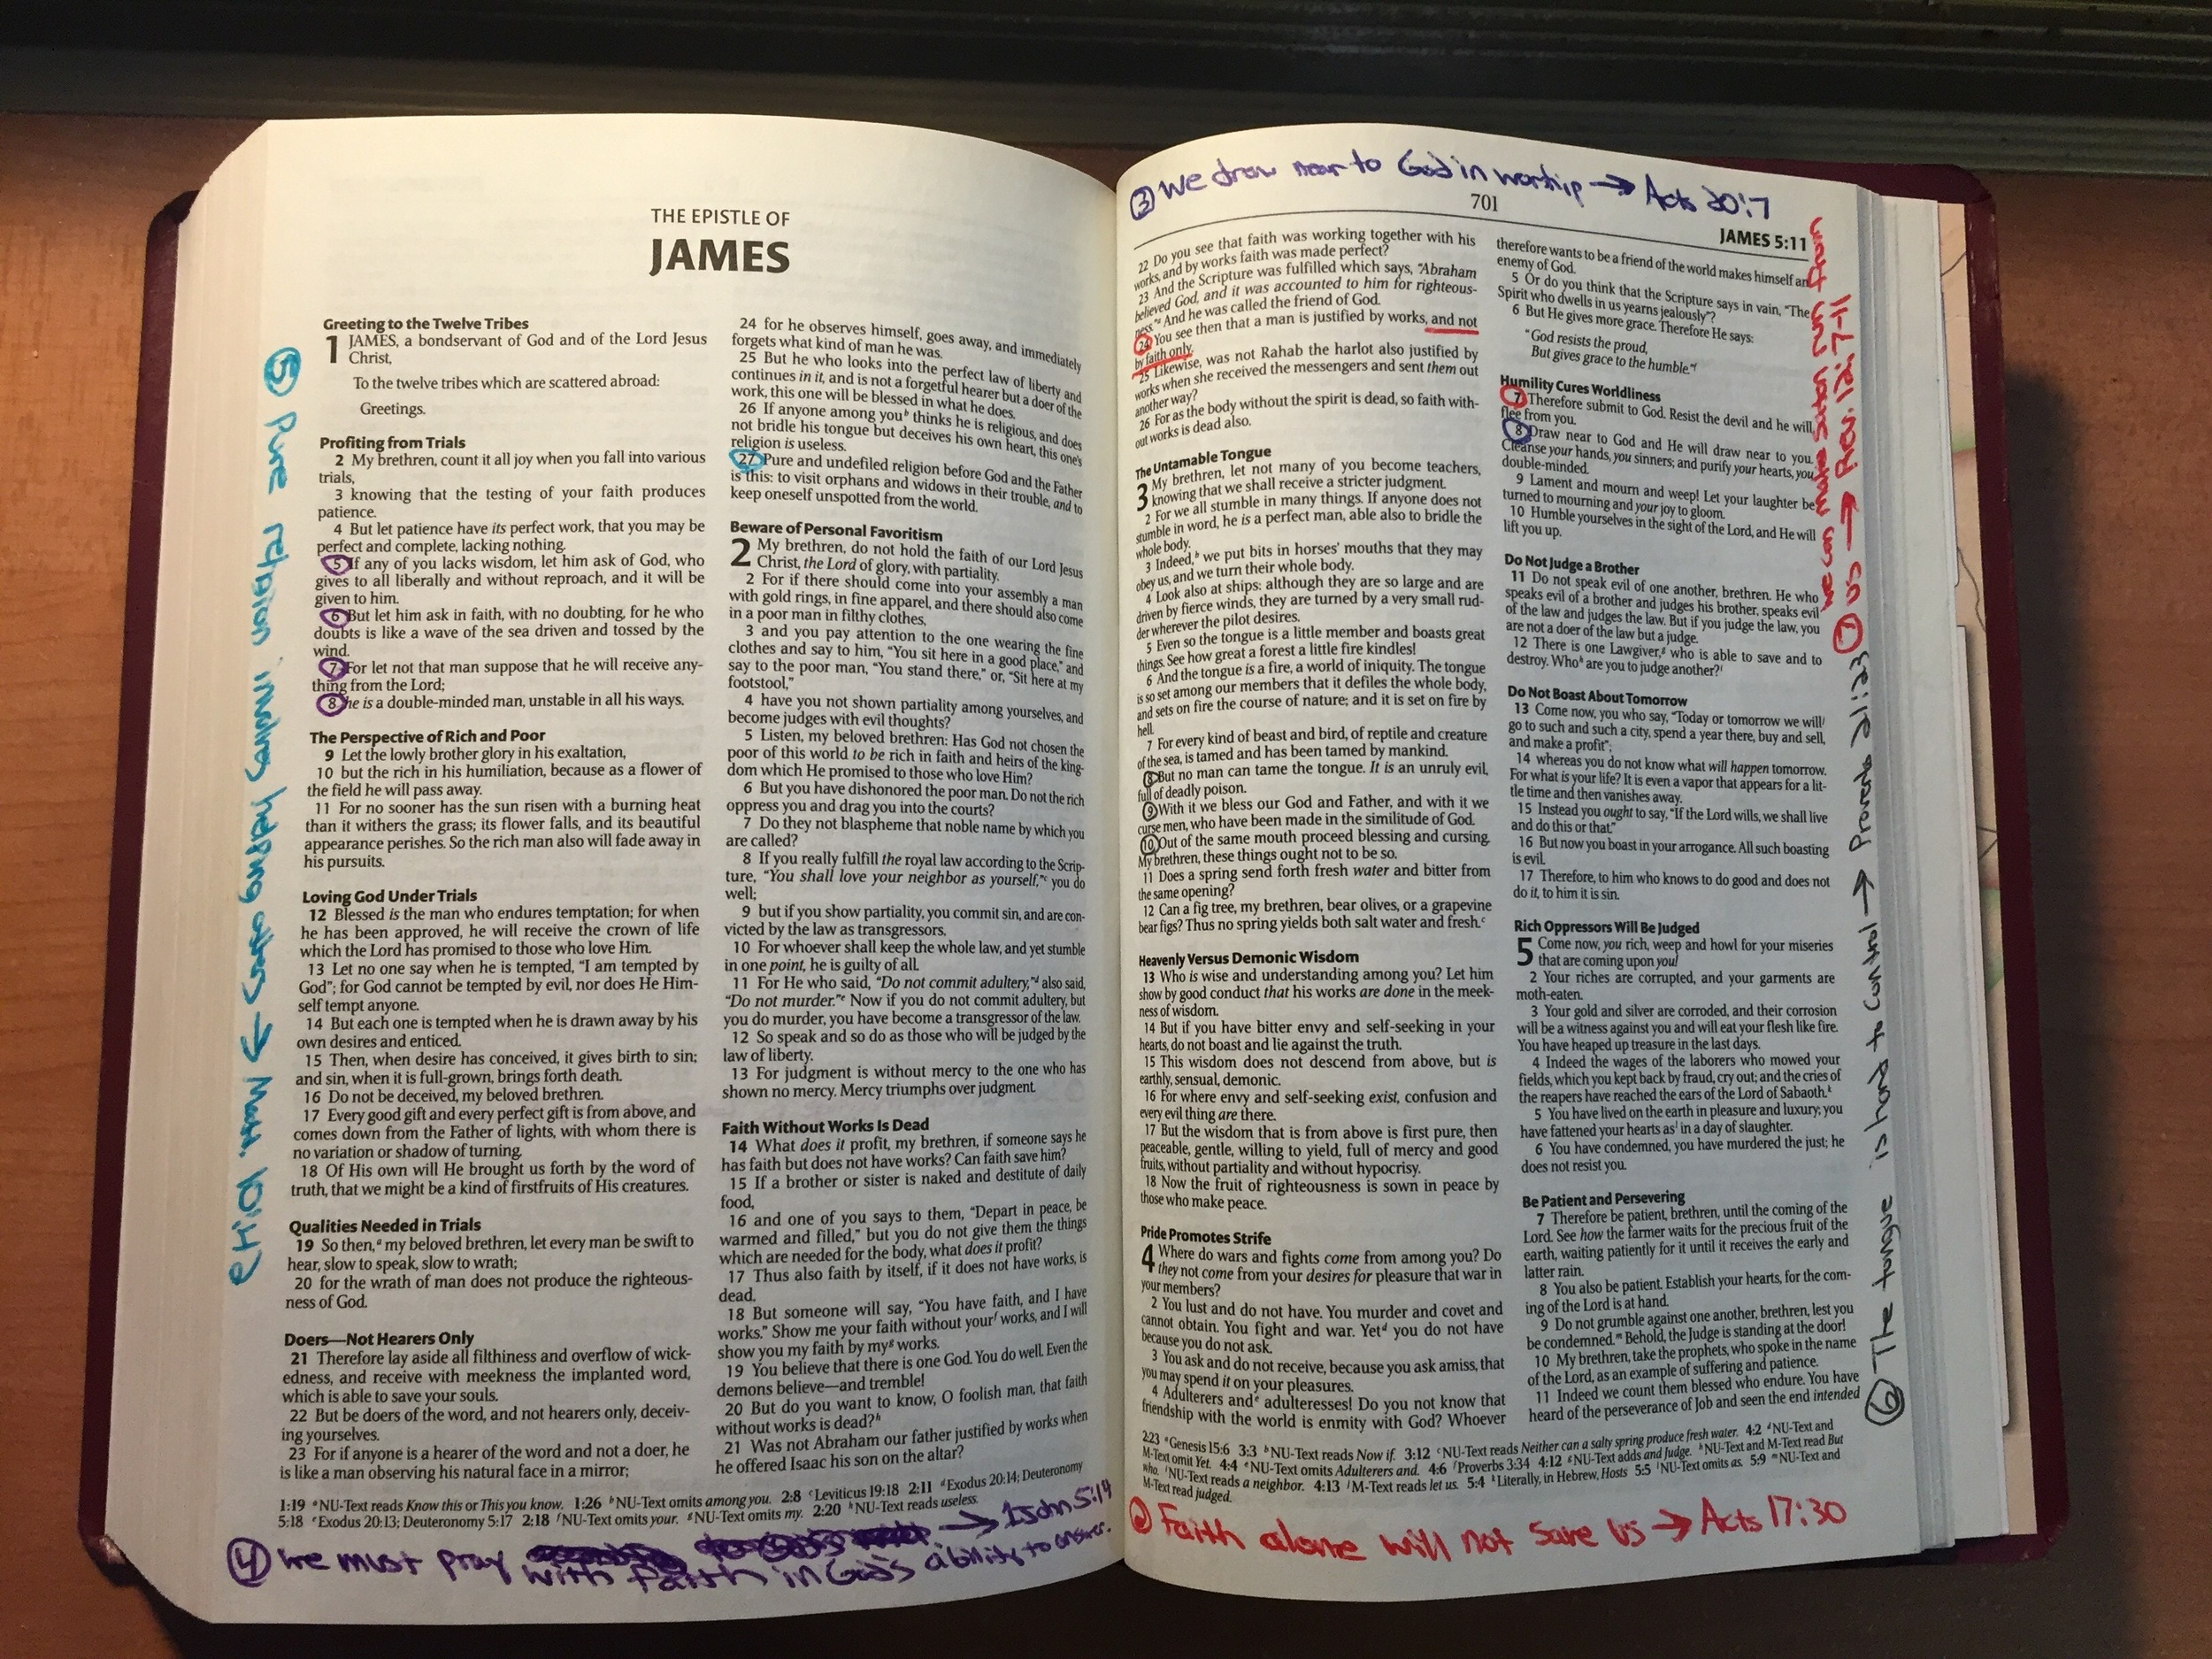 THE EPISTLE OF
JAMES
Greeting to the Twelve Tribes
1 JAMES, a bondservant of God and of the Lord Jesus
Christ,
To the twelve tribes which are scattered abroad:
Greetings.
Profiting from Trials
2 My brethren, count it all joy when you fall into various
trials,
3 knowing that the testing of your faith produces
patience.
4 But let patience have its perfect work, that you may be
perfect and complete, lacking nothing.
5 If any of you lacks wisdom, let him ask of God, who
gives to all liberally and without reproach, and it will be
given to him.
6 But let him ask in faith, with no doubting, for he who
doubts is like a wave of the sea driven and tossed by the
wind.
7 For let not that man suppose that he will receive any-
thing from the Lord;
8 he is a double-minded man, unstable in all his ways.
The Perspective of Rich and Poor
9 Let the lowly brother glory in his exaltation,
10 but the rich in his humiliation, because as a flower of
the field he will pass away.
11 For no sooner has the sun risen with a burning heat
than it withers the grass; its flower falls, and its beautiful
appearance perishes. So the rich man also will fade away in
his pursuits.
Loving God Under Trials
12 Blessed is the man who endures temptation; for when
he has been approved, he will receive the crown of life
which the Lord has promised to those who love Him.
13 Let no one say when he is tempted, “I am tempted by
God”; for God cannot be tempted by evil, nor does He Him-
self tempt anyone.
14 But each one is tempted when he is drawn away by his
own desires and enticed.
15 Then, when desire has conceived, it gives birth to sin;
and sin, when it is full-grown, brings forth death.
16 Do not be deceived, my beloved brethren.
17 Every good gift and every perfect gift is from above, and
comes down from the Father of lights, with whom there is
no variation or shadow of turning.
18 Of His own will He brought us forth by the word of
truth, that we might be a kind of firstfruits of His creatures.
Qualities Needed in Trials
19 So then,a my beloved brethren, let every man be swift to
hear, slow to speak, slow to wrath;
20 for the wrath of man does not produce the righteous-
ness of God.
Doers—Not Hearers Only
21 Therefore lay aside all filthiness and overflow of wick-
edness, and receive with meekness the implanted word,
which is able to save your souls.
22 But be doers of the word, and not hearers only, deceiv-
ing yourselves.
23 For if anyone is a hearer of the word and not a doer, he
is like a man observing his natural face in a mirror;
24 for he observes himself, goes away, and immediately
forgets what kind of man he was.
25 But he who looks into the perfect law of liberty and
continues in it, and is not a forgetful hearer but a doer of the
work, this one will be blessed in what he does.
26 If anyone among youb thinks he is religious, and does
not bridle his tongue but deceives his own heart, this one’s
religion is useless.
27 Pure and undefiled religion before God and the Father
is this: to visit orphans and widows in their trouble, and to
keep oneself unspotted from the world.
Beware of Personal Favoritism
2 My brethren, do not hold the faith of our Lord Jesus
Christ, the Lord of glory, with partiality.
2 For if there should come into your assembly a man
with gold rings, in fine apparel, and there should also come
in a poor man in filthy clothes,
3 and you pay attention to the one wearing the fine
clothes and say to him, “You sit here in a good place,” and
say to the poor man, “You stand there,” or, “Sit here at my
footstool,”
4 have you not shown partiality among yourselves, and
become judges with evil thoughts?
5 Listen, my beloved brethren: Has God not chosen the
poor of this world to be rich in faith and heirs of the king-
dom which He promised to those who love Him?
6 But you have dishonored the poor man. Do not the rich
oppress you and drag you into the courts?
7 Do they not blaspheme that noble name by which you
are called?
8 If you really fulfill the royal law according to the Scrip-
ture, “You shall love your neighbor as yourself,”c you do
well;
9 but if you show partiality, you commit sin, and are con-
victed by the law as transgressors.
10 For whoever shall keep the whole law, and yet stumble
in one point, he is guilty of all.
11 For He who said, “Do not commit adultery,”d also said,
“Do not murder.”e Now if you do not commit adultery, but
you do murder, you have become a transgressor of the law.
12 So speak and so do as those who will be judged by the
law of liberty.
13 For judgment is without mercy to the one who has
shown no mercy. Mercy triumphs over judgment.
Faith Without Works Is Dead
14 What does it profit, my brethren, if someone says he
has faith but does not have works? Can faith save him?
15 If a brother or sister is naked and destitute of daily
food,
16 and one of you says to them, “Depart in peace, be
warmed and filled,” but you do not give them the things
which are needed for the body, what does it profit?
17 Thus also faith by itself, if it does not have works, is
dead.
18 But someone will say, “You have faith, and I have
works.” Show me your faith without yourf works, and I will
show you my faith by myg works.
19 You believe that there is one God. You do well. Even the
demons believe—and tremble!
20 But do you want to know, O foolish man, that faith
without works is dead?h
21 Was not Abraham our father justified by works when
he offered Isaac his son on the altar?
1:19 aNU-Text reads Know this or This you know. 1:26 bNU-Text omits among you. 2:8 cLeviticus 19:18 2:11 dExodus 20:14; Deuteronomy
5:18 eExodus 20:13; Deuteronomy 5:17 2:18 fNU-Text omits your. gNU-Text omits my. 2:20 hNU-Text reads useless.
5 Pure religion involves helping others → Matt. 10:42
4 We must pray → 1 John 5:14
with faith in God's ability to answer.
3 We draw near to God in worship → Acts 20:7
701
JAMES 5:11
22 Do you see that faith was working together with his
works, and by works faith was made perfect?
23 And the Scripture was fulfilled which says, “Abraham
believed God, and it was accounted to him for righteous-
ness.”a And he was called the friend of God.
24 You see then that a man is justified by works, and not
by faith only.
25 Likewise, was not Rahab the harlot also justified by
works when she received the messengers and sent them out
another way?
26 For as the body without the spirit is dead, so faith with-
out works is dead also.
The Untamable Tongue
3 My brethren, let not many of you become teachers,
knowing that we shall receive a stricter judgment.
2 For we all stumble in many things. If anyone does not
stumble in word, he is a perfect man, able also to bridle the
whole body.
3 Indeed,b we put bits in horses’ mouths that they may
obey us, and we turn their whole body.
4 Look also at ships: although they are so large and are
driven by fierce winds, they are turned by a very small rud-
der wherever the pilot desires.
5 Even so the tongue is a little member and boasts great
things. See how great a forest a little fire kindles!
6 And the tongue is a fire, a world of iniquity. The tongue
is so set among our members that it defiles the whole body,
and sets on fire the course of nature; and it is set on fire by
hell.
7 For every kind of beast and bird, of reptile and creature
of the sea, is tamed and has been tamed by mankind.
8 But no man can tame the tongue. It is an unruly evil,
full of deadly poison.
9 With it we bless our God and Father, and with it we
curse men, who have been made in the similitude of God.
10 Out of the same mouth proceed blessing and cursing.
My brethren, these things ought not to be so.
11 Does a spring send forth fresh water and bitter from
the same opening?
12 Can a fig tree, my brethren, bear olives, or a grapevine
bear figs? Thus no spring yields both salt water and fresh.c
Heavenly Versus Demonic Wisdom
13 Who is wise and understanding among you? Let him
show by good conduct that his works are done in the meek-
ness of wisdom.
14 But if you have bitter envy and self-seeking in your
hearts, do not boast and lie against the truth.
15 This wisdom does not descend from above, but is
earthly, sensual, demonic.
16 For where envy and self-seeking exist, confusion and
every evil thing are there.
17 But the wisdom that is from above is first pure, then
peaceable, gentle, willing to yield, full of mercy and good
fruits, without partiality and without hypocrisy.
18 Now the fruit of righteousness is sown in peace by
those who make peace.
Pride Promotes Strife
4 Where do wars and fights come from among you? Do
they not come from your desires for pleasure that war in
your members?
2 You lust and do not have. You murder and covet and
cannot obtain. You fight and war. Yetd you do not have
because you do not ask.
3 You ask and do not receive, because you ask amiss, that
you may spend it on your pleasures.
4 Adulterers ande adulteresses! Do you not know that
friendship with the world is enmity with God? Whoever
therefore wants to be a friend of the world makes himself an
enemy of God.
5 Or do you think that the Scripture says in vain, “The
Spirit who dwells in us yearns jealously”?
6 But He gives more grace. Therefore He says:
“God resists the proud,
But gives grace to the humble.”f
Humility Cures Worldliness
7 Therefore submit to God. Resist the devil and he will
flee from you.
8 Draw near to God and He will draw near to you.
Cleanse your hands, you sinners; and purify your hearts, you
double-minded.
9 Lament and mourn and weep! Let your laughter be
turned to mourning and your joy to gloom.
10 Humble yourselves in the sight of the Lord, and He will
lift you up.
Do Not Judge a Brother
11 Do not speak evil of one another, brethren. He who
speaks evil of a brother and judges his brother, speaks evil
of the law and judges the law. But if you judge the law, you
are not a doer of the law but a judge.
12 There is one Lawgiver,g who is able to save and to
destroy. Whoh are you to judge another?i
Do Not Boast About Tomorrow
13 Come now, you who say, “Today or tomorrow we will
go to such and such a city, spend a year there, buy and sell,
and make a profit”;
14 whereas you do not know what will happen tomorrow.
For what is your life? It is even a vapor that appears for a lit-
tle time and then vanishes away.
15 Instead you ought to say, “If the Lord wills, we shall live
and do this or that.”
16 But now you boast in your arrogance. All such boasting
is evil.
17 Therefore, to him who knows to do good and does not
do it, to him it is sin.
Rich Oppressors Will Be Judged
5 Come now, you rich, weep and howl for your miseries
that are coming upon you!
2 Your riches are corrupted, and your garments are
moth-eaten.
3 Your gold and silver are corroded, and their corrosion
will be a witness against you and will eat your flesh like fire.
You have heaped up treasure in the last days.
4 Indeed the wages of the laborers who mowed your
fields, which you kept back by fraud, cry out; and the cries of
the reapers have reached the ears of the Lord of Sabaoth.k
5 You have lived on the earth in pleasure and luxury; you
have fattened your hearts asl in a day of slaughter.
6 You have condemned, you have murdered the just; he
does not resist you.
Be Patient and Persevering
7 Therefore be patient, brethren, until the coming of the
Lord. See how the farmer waits for the precious fruit of the
earth, waiting patiently for it until it receives the early and
latter rain.
8 You also be patient. Establish your hearts, for the com-
ing of the Lord is at hand.
9 Do not grumble against one another, brethren, lest you
be condemned.m Behold, the Judge is standing at the door!
10 My brethren, take the prophets, who spoke in the name
of the Lord, as an example of suffering and patience.
11 Indeed we count them blessed who endure. You have
heard of the perseverance of Job and seen the end intended
2:23 aGenesis 15:6 3:3 bNU-Text reads Now if. 3:12 cNU-Text reads Neither can a salty spring produce fresh water. 4:2 dNU-Text and
M-Text omit Yet. 4:4 eNU-Text omits Adulterers and. 4:6 fProverbs 3:34 4:12 gNU-Text adds and Judge. hNU-Text and M-Text read But
who. iNU-Text reads a neighbor. 4:13 jM-Text reads let us. 5:4 kLiterally, in Hebrew, Hosts 5:5 lNU-Text omits as. 5:9 mNU-Text and
M-Text read judged.
1 we can make Satan run from
us → Rev. 12:7-11
6 The tongue is hard to control → Proverbs 21:23
2 Faith alone will not save us → Acts 17:30